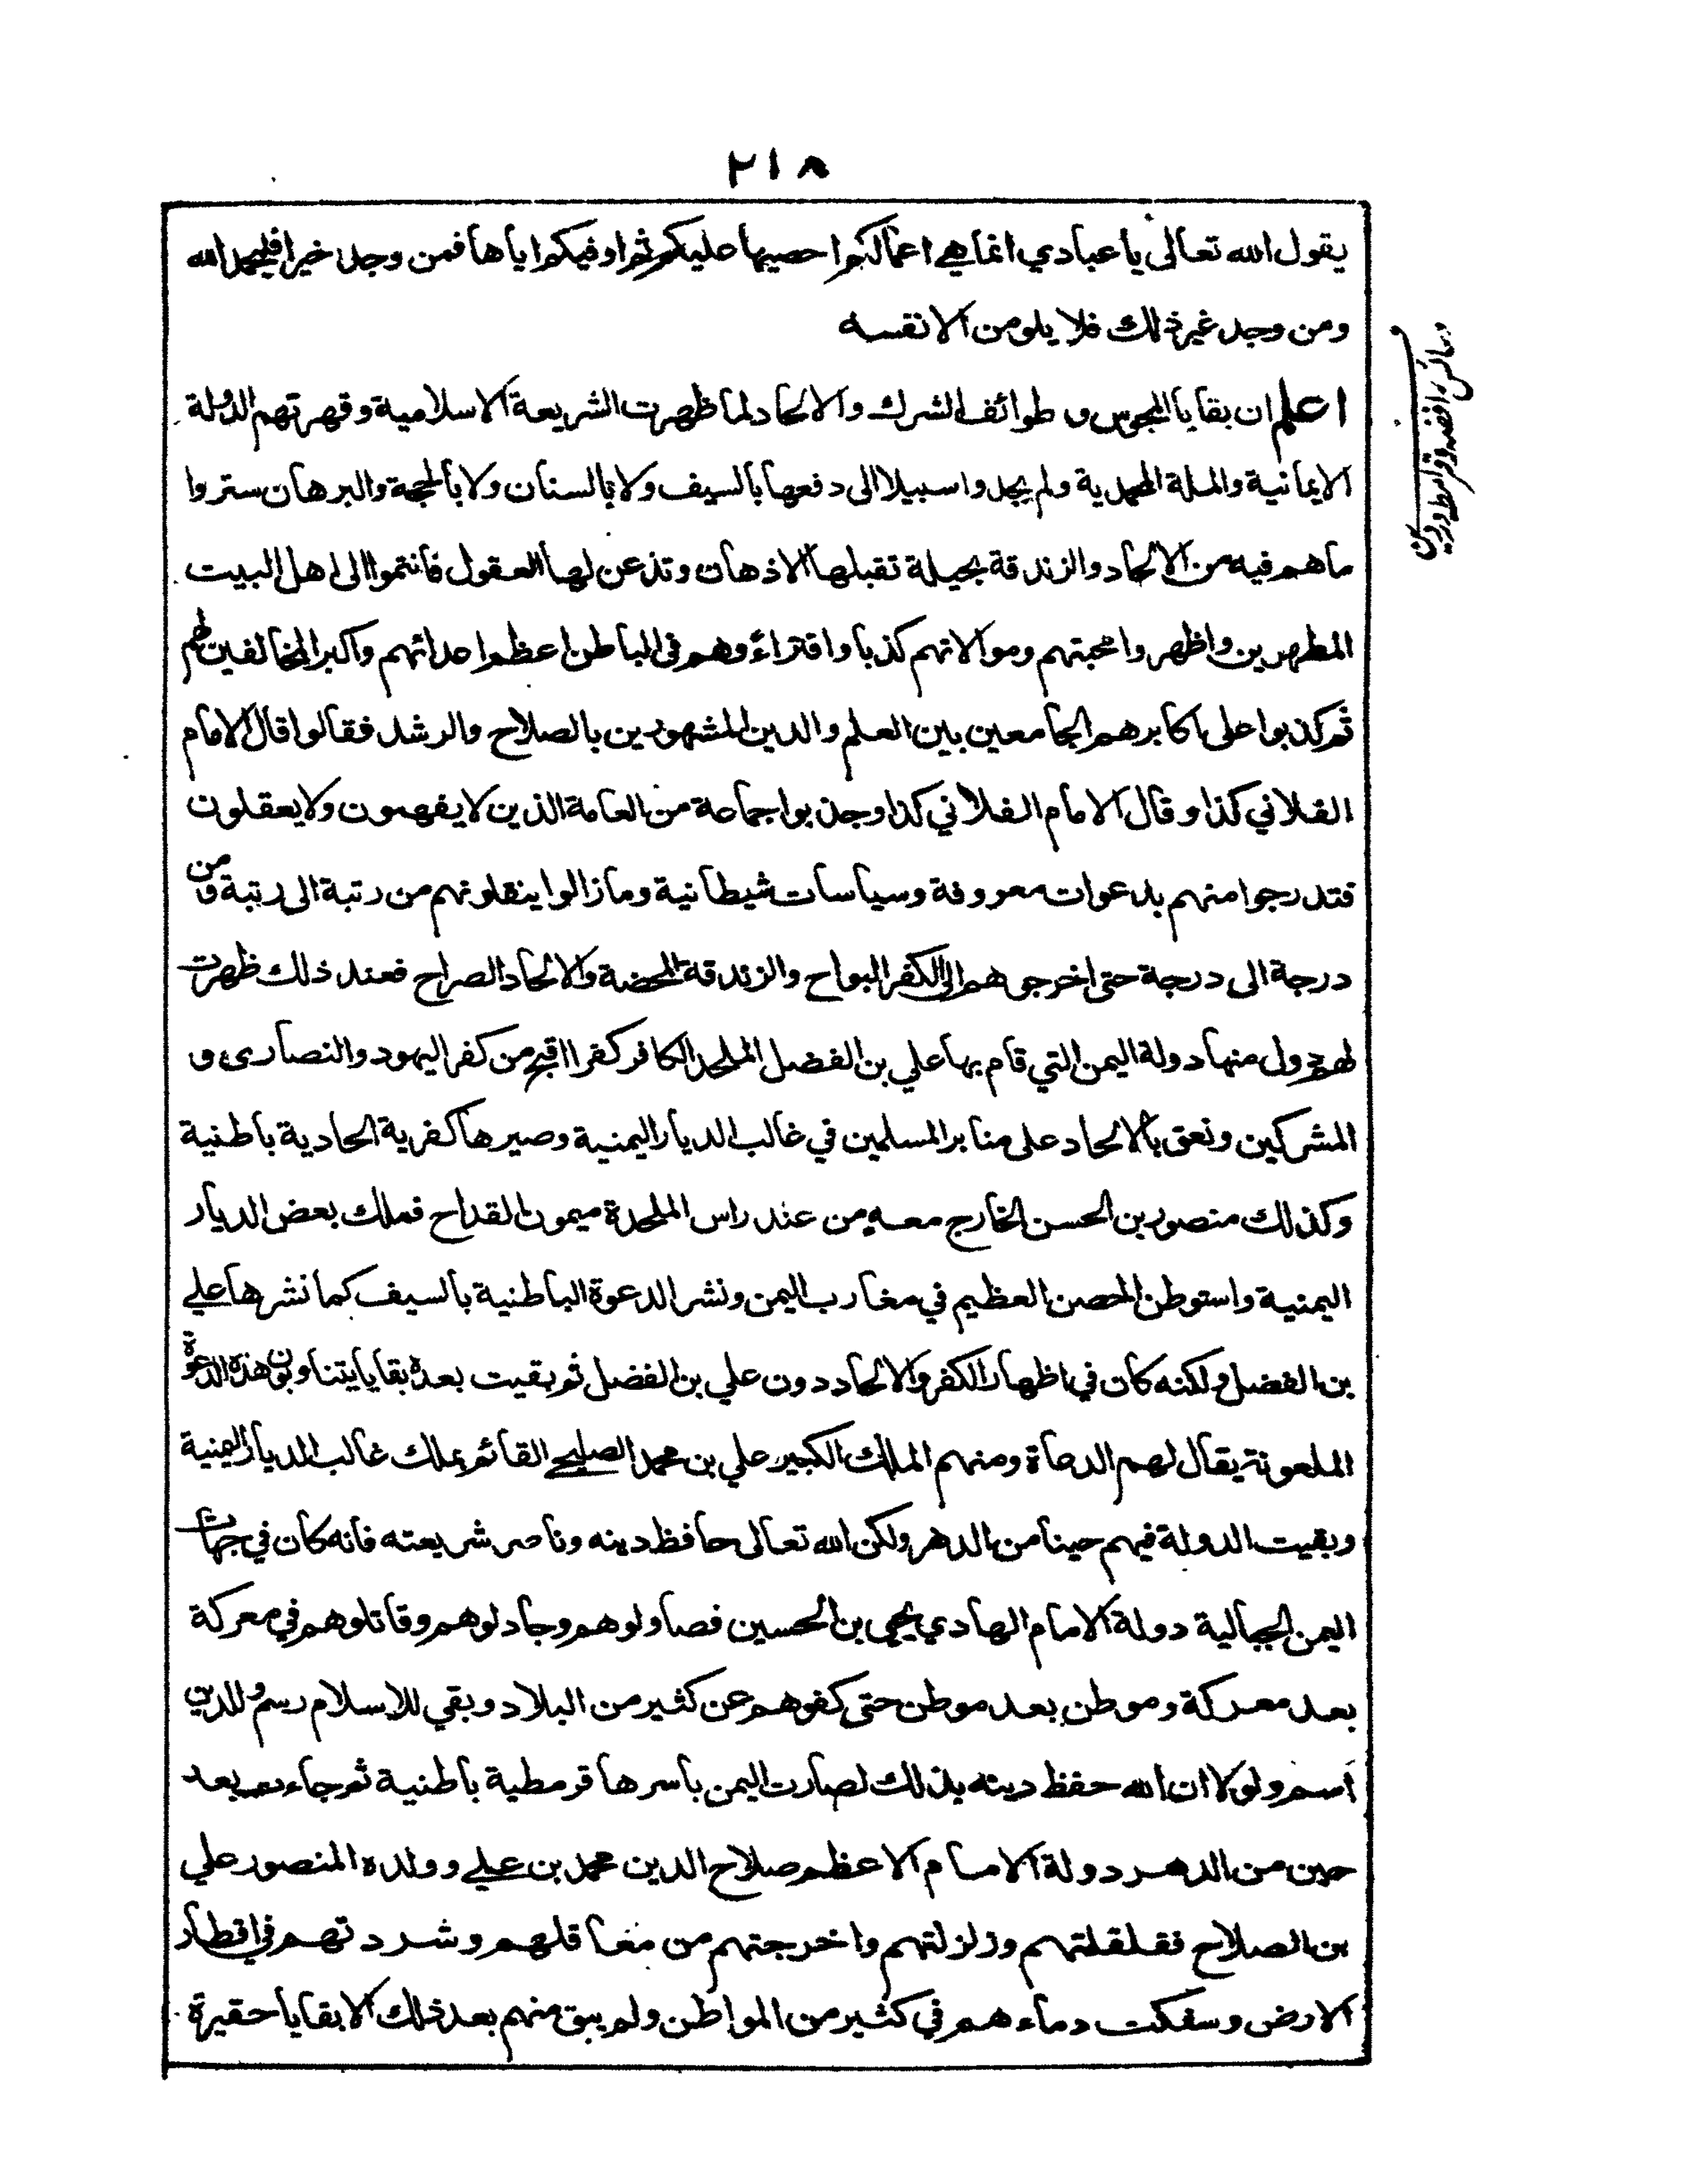 ٢١٨
يقول الله تعالى يا عبادي انما هي اعمالكم احصيها عليكم ثم اوفيكم اياها فمن وجد خيرا فليحمد الله
ومن وجد غير ذلك فلا يلومن الا نفسه
اعلم ان بقايا المجوس و طوائف الشرك والالحاد لما ظهرت الشريعة الاسلامية وقهرتهم الدولة
الايمانية والملة المحمدية ولم يجدوا سبيلا الى دفعها بالسيف ولا بالسنان ولا بالحجة والبرهان ستروا
ما هم فيه من الالحاد والزندقة بحيلة تقبلها الاذهان وتذعن لها العقول فانتموا الى اهل البيت
المطهرين واظهروا محبتهم وموالاتهم كذبا وافتراءً وهم في الباطن اعظم اعدائهم واكبر المخالفين لهم
ثم كذبوا على اكابرهم الجامعين بين العلم والدين المشهورين بالصلاح والرشد فقالوا قال الامام
الفلاني كذا وقال الامام الفلاني كذا وجذبوا جماعة من العامة الذين لا يفهمون ولا يعقلون
فتدرجوا منهم بدعوات معروفة وسياسات شيطانية ومازالوا ينقلونهم من رتبة الى رتبة ومن
درجة الى درجة حتى اخرجوهم الى الكفر البواح والزندقة المحضة والالحاد الصراح فعند ذلك ظهرت
لهم دول منها دولة اليمن التي قام بها علي بن الفضل الملحد الكافر كفرا اقبح من كفر اليهود والنصارى و
المشركين ونعق بالالحاد على منابر المسلمين في غالب الديار اليمنية وصيرها كفرية الحادية باطنية
وكذلك منصور بن الحسن الخارج معه من عند راس الملحدة ميمون القداح فملك بعض الديار
اليمنية واستوطن الحصن العظيم في مغارب اليمن ونشر الدعوة الباطنية بالسيف كما نشرها علي
بن الفضل ولكنه كان في اظهار الكفر والالحاد دون علي بن الفضل ثم بقيت بعده بقايا يتناوبون هذه الدعوة
الملعونة يقال لهم الدعاة ومنهم الملك الكبير علي بن محمد الصليحي القائم بملك غالب الديار اليمنية
وبقيت الدولة فيهم حينا من الدهر ولكن الله تعالى حافظ دينه وناصر شريعته فانه كان في جهات
اليمن الجبالية دولة الامام الهادي يحيى بن الحسين فصاولوهم وجادلوهم وقاتلوهم في معركة
بعد معركة وموطن بعد موطن حتى كفوهم عن كثير من البلاد وبقي للاسلام رسم وللدين
اسم ولولا ان الله حفظ دينه بذلك لصارت اليمن باسرها قرمطية باطنية ثم جاءت بعد
حين من الدهر دولة الامام الاعظم صلاح الدين محمد بن علي وولده المنصور علي
بن الصلاح فقلقلتهم وزلزلتهم واخرجتهم من معاقلهم وشردتهم في اقطار
الارض وسفكت دماءهم في كثير من المواطن ولم يبق منهم بعد ذلك الا بقايا حقيرة